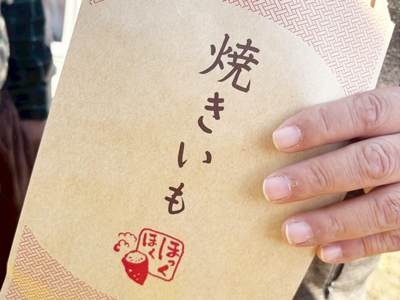 焼きいも
ほっく
ほく